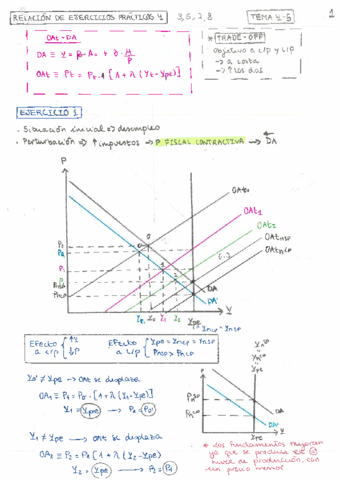 RELACIÓN DE EJERCICIOS PRÁCTICOS 4
3, 5, 7, 8
TEMA 4-5
1
OAt-DA
DA ≡ Y = β · A₀ + ∂ · M/P
OAt ≡ Pt = Pt-1 [1 + λ (Yt - Ype)]
* TRADE-OFF
Objetivo a c/p y l/p
→ a costa
→ ↑ los dos
EJERCICIO 1
· Situación inicial => desempleo
· Perturbación => ↑ impuestos → P. FISCAL CONTRACTIVA → DA
P
OAt0
OAt1
OAt2
OAtNSP
OAtNCP
P1
P2
PNCP
DA
DA'
Y
Ype
= YNCP = YNSP
Efecto a c/p { ↑Y ↓P
Efecto a l/p { Ype = YNCP = YNSP
PNSP > PNCP
Y0' ≠ Ype → OAt se desplaza
OA1 ≡ P1 = P0' · [1 + λ (Y1 - Ype)]
Y1 = Ype → P1 = P0'
Y1 ≠ Ype → OAt se desplaza
OA2 ≡ P2 = P1 [1 + λ (Y2 - Ype)]
Y2 = Ype → P2 = P1
YNSP
YNCP
Ype
P
PNSP
PNCP
DA
DA'
Y
Ype
* Los fundamentos mejoran
ya que se produce el =
nivel de producción, con
un precio menor